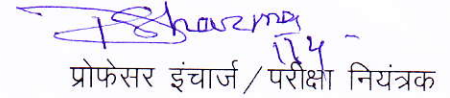 Sharma
11/4
प्रोफेसर इंचार्ज / परीक्षा नियंत्रक